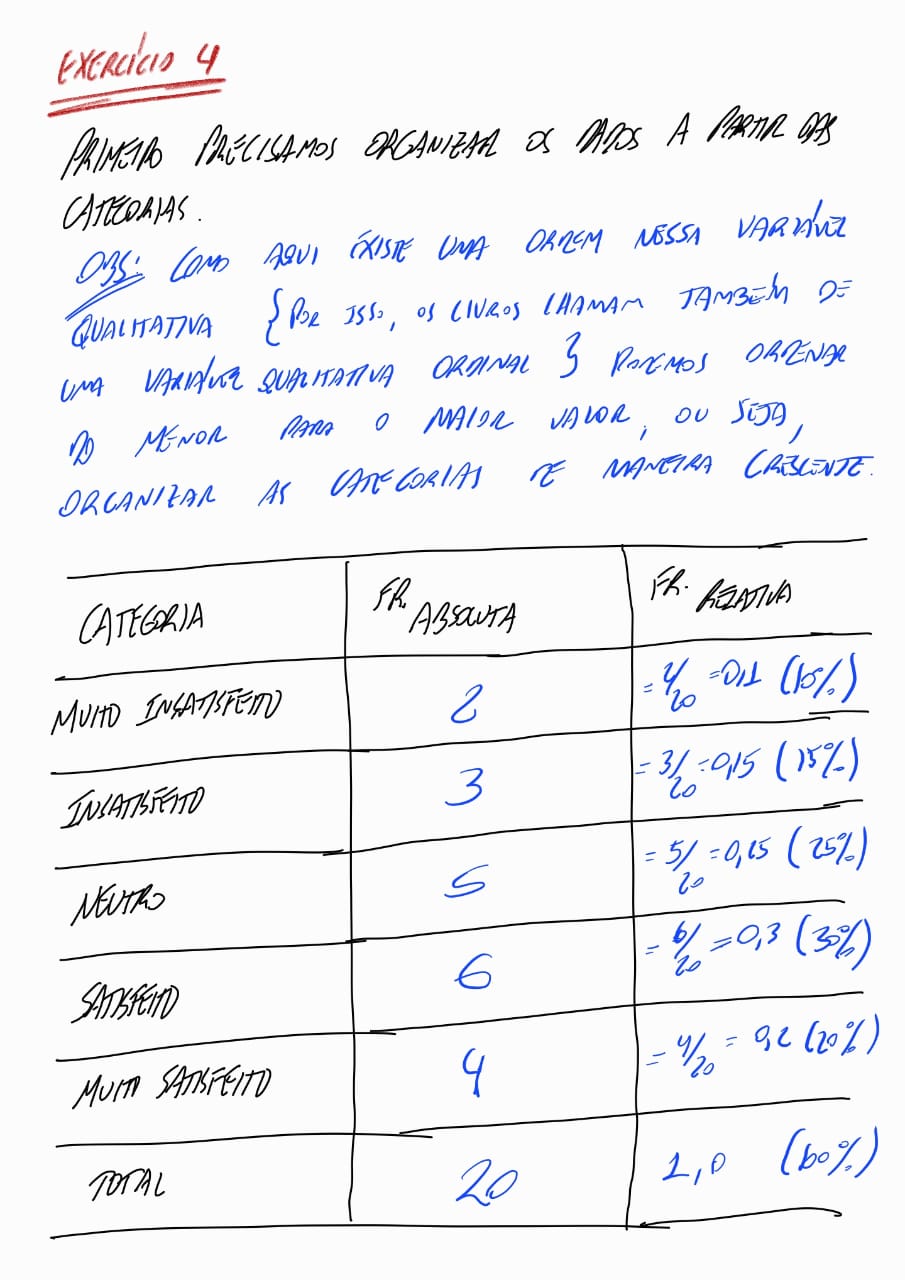 EXERCÍCIO 4
PRIMEIRO PRECISAMOS ORGANIZAR OS DADOS A PARTIR DAS
CATEGORIAS.
OBS: COMO AQUI EXISTE UMA ORDEM NESSA VARIÁVEL
QUALITATIVA {POR ISSO, OS LIVROS CHAMAM TAMBÉM DE
UMA VARIÁVEL QUALITATIVA ORDINAL} PODEMOS ORDENAR
DO MENOR PARA O MAIOR VALOR, OU SEJA,
ORGANIZAR AS CATEGORIAS DE MANEIRA CRESCENTE.
CATEGORIA FR. ABSOLUTA FR. RELATIVA
MUITO INSATISFEITO 2 = 4/20 = 0,1 (10%)
INSATISFEITO 3 = 3/20 = 0,15 (15%)
NEUTRO 5 = 5/20 = 0,25 (25%)
SATISFEITO 6 = 6/20 = 0,3 (30%)
MUITO SATISFEITO 4 = 4/20 = 0,2 (20%)
TOTAL 20 1,0 (100%)